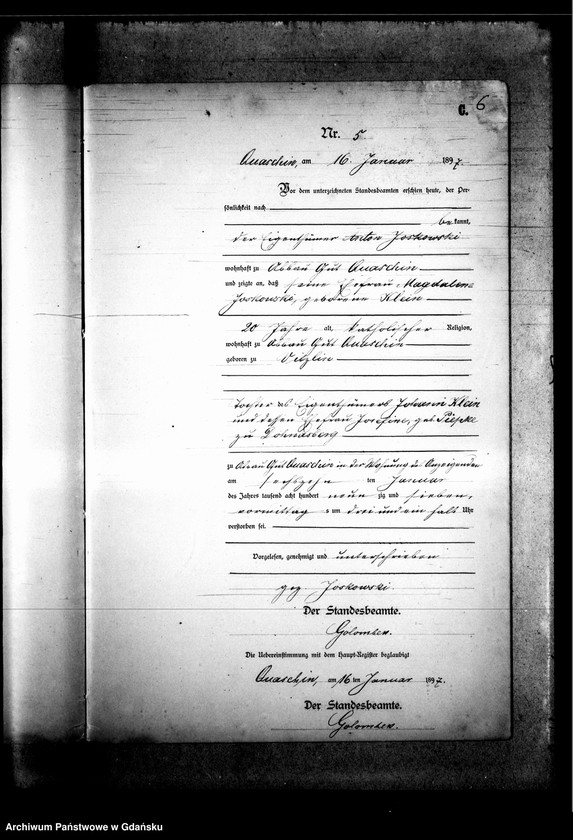 C. 6
Nr. 5
Quaschin, am 16. Januar 1897.
Vor dem unterzeichneten Standesbeamten erschien heute, der Per-
sönlichkeit nach
bekannt,
der Eigenthümer Anton Joskowski
wohnhaft zu Abbau Gut Quaschin
und zeigte an, daß seine Ehefrau Magdalena
Joskowski, geborene Klein
20 Jahre alt, katholischer Religion,
wohnhaft zu Abbau Gut Quaschin
geboren zu
Tochter des Eigenthümers Johann Klein
und dessen Ehefrau Josefine, geb.
zu
zu Abbau Gut Quaschin in der Wohnung des Anzeigenden
am sechszehn ten Januar
des Jahres tausend acht hundert neun zig und sieben,
vormittag s um drei und ein halb Uhr
verstorben sei.
Vorgelesen, genehmigt und unterschrieben
gez Joskowski.
Der Standesbeamte.
Golombek.
Die Uebereinstimmung mit dem Haupt-Register beglaubigt
Quaschin, am 16 ten Januar 1897.
Der Standesbeamte.
Golombek.
Archiwum Państwowe w Gdańsku